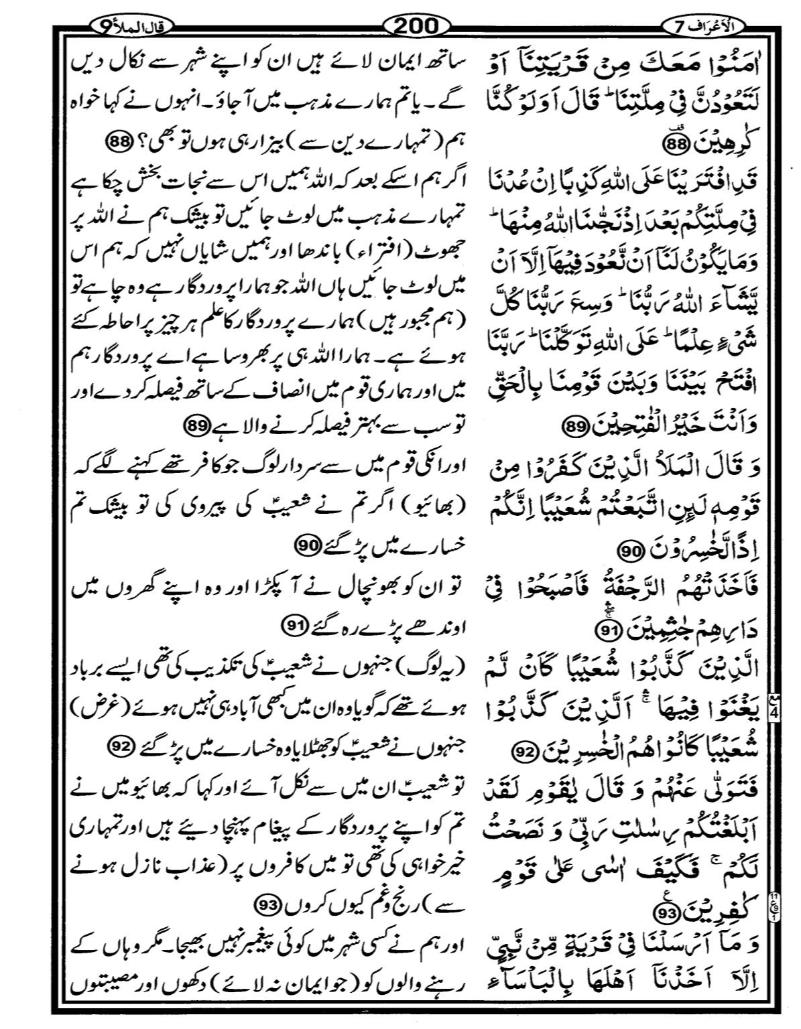 الاَعۡرَاف 7
200
قال الملأ 9
اٰمَنُوۡا مَعَكَ مِنۡ قَرۡيَتِنَاۤ اَوۡ
لَتَعُوۡدُنَّ فِىۡ مِلَّتِنَا‌ ؕ قَالَ اَوَلَوۡ كُنَّا
كٰرِهِيۡنَ 88
قَدِ افۡتَرَيۡنَا عَلَى اللّٰهِ كَذِبًا اِنۡ عُدۡنَا
فِىۡ مِلَّتِكُمۡ بَعۡدَ اِذۡ نَجّٰٮنَا اللّٰهُ مِنۡهَا‌ ؕ
وَمَا يَكُوۡنُ لَنَاۤ اَنۡ نَّعُوۡدَ فِيۡهَاۤ اِلَّاۤ اَنۡ
يَّشَآءَ اللّٰهُ رَبُّنَا‌ ؕ وَسِعَ رَبُّنَا كُلَّ
شَىۡءٍ عِلۡمًا‌ ؕ عَلَى اللّٰهِ تَوَكَّلۡنَا‌ ؕ رَبَّنَا
افۡتَحۡ بَيۡنَنَا وَبَيۡنَ قَوۡمِنَا بِالۡحَقِّ
وَاَنۡتَ خَيۡرُ الۡفٰتِحِيۡنَ 89
وَ قَالَ الۡمَلَاُ الَّذِيۡنَ كَفَرُوۡا مِنۡ
قَوۡمِهٖ لَئِنِ اتَّبَعۡتُمۡ شُعَيۡبًا اِنَّكُمۡ
اِذًا لَّخٰسِرُوۡنَ 90
فَاَخَذَتۡهُمُ الرَّجۡفَةُ فَاَصۡبَحُوۡا فِىۡ
دَارِهِمۡ جٰثِمِيۡنَ ۛ 91
الَّذِيۡنَ كَذَّبُوۡا شُعَيۡبًا كَاَنۡ لَّمۡ
يَغۡنَوۡا فِيۡهَا ‌ۛۚ اَلَّذِيۡنَ كَذَّبُوۡا
شُعَيۡبًا كَانُوۡا هُمُ الۡخٰسِرِيۡنَ 92
فَتَوَلّٰى عَنۡهُمۡ وَ قَالَ يٰقَوۡمِ لَقَدۡ
اَبۡلَغۡتُكُمۡ رِسٰلٰتِ رَبِّىۡ وَ نَصَحۡتُ
لَكُمۡ‌ ۚ فَكَيۡفَ اٰسٰى عَلٰى قَوۡمٍ
كٰفِرِيۡنَ 93
وَ مَاۤ اَرۡسَلۡنَا فِىۡ قَرۡيَةٍ مِّنۡ نَّبِىٍّ
اِلَّاۤ اَخَذۡنَاۤ اَهۡلَهَا بِالۡبَاۡسَآءِ
ساتھ ایمان لائے ہیں ان کو اپنے شہر سے نکال دیں
گے۔ یا تم ہمارے مذہب میں آجاؤ۔ انہوں نے کہا خواہ
ہم (تمہارے دین سے) بیزار ہی ہوں تو بھی؟ 88
اگر ہم اسکے بعد کہ اللہ ہمیں اس سے نجات بخش چکا ہے
تمہارے مذہب میں لوٹ جائیں تو بیشک ہم نے اللہ پر
جھوٹ (افتراء) باندھا اور ہمیں شایاں نہیں کہ ہم اس
میں لوٹ جائیں ہاں اللہ جو ہمارا پروردگار ہے وہ چاہے تو
(ہم مجبور ہیں) ہمارے پروردگار کا علم ہر چیز پر احاطہ کئے
ہوئے ہے۔ ہمارا اللہ ہی پر بھروسا ہے اے پروردگار ہم
میں اور ہماری قوم میں انصاف کے ساتھ فیصلہ کر دے اور
تو سب سے بہتر فیصلہ کرنے والا ہے 89
اور انکی قوم میں سے سردار لوگ جو کافر تھے کہنے لگے کہ
(بھائیو) اگر تم نے شعیبؑ کی پیروی کی تو بیشک تم
خسارے میں پڑ گئے 90
تو ان کو بھونچال نے آ پکڑا اور وہ اپنے گھروں میں
اوندھے پڑے رہ گئے 91
(یہ لوگ) جنہوں نے شعیبؑ کی تکذیب کی تھی ایسے برباد
ہوئے تھے کہ گویا وہ ان میں کبھی آباد ہی نہیں ہوئے (غرض)
جنہوں نے شعیبؑ کو جھٹلایا وہ خسارے میں پڑ گئے 92
تو شعیبؑ ان میں سے نکل آئے اور کہا کہ بھائیو میں نے
تم کو اپنے پروردگار کے پیغام پہنچا دیئے ہیں اور تمہاری
خیر خواہی کی تھی تو میں کافروں پر (عذاب نازل ہونے
سے) رنج و غم کیوں کروں 93
اور ہم نے کسی شہر میں کوئی پیغمبر نہیں بھیجا۔ مگر وہاں کے
رہنے والوں کو (جو ایمان نہ لائے) دکھوں اور مصیبتوں